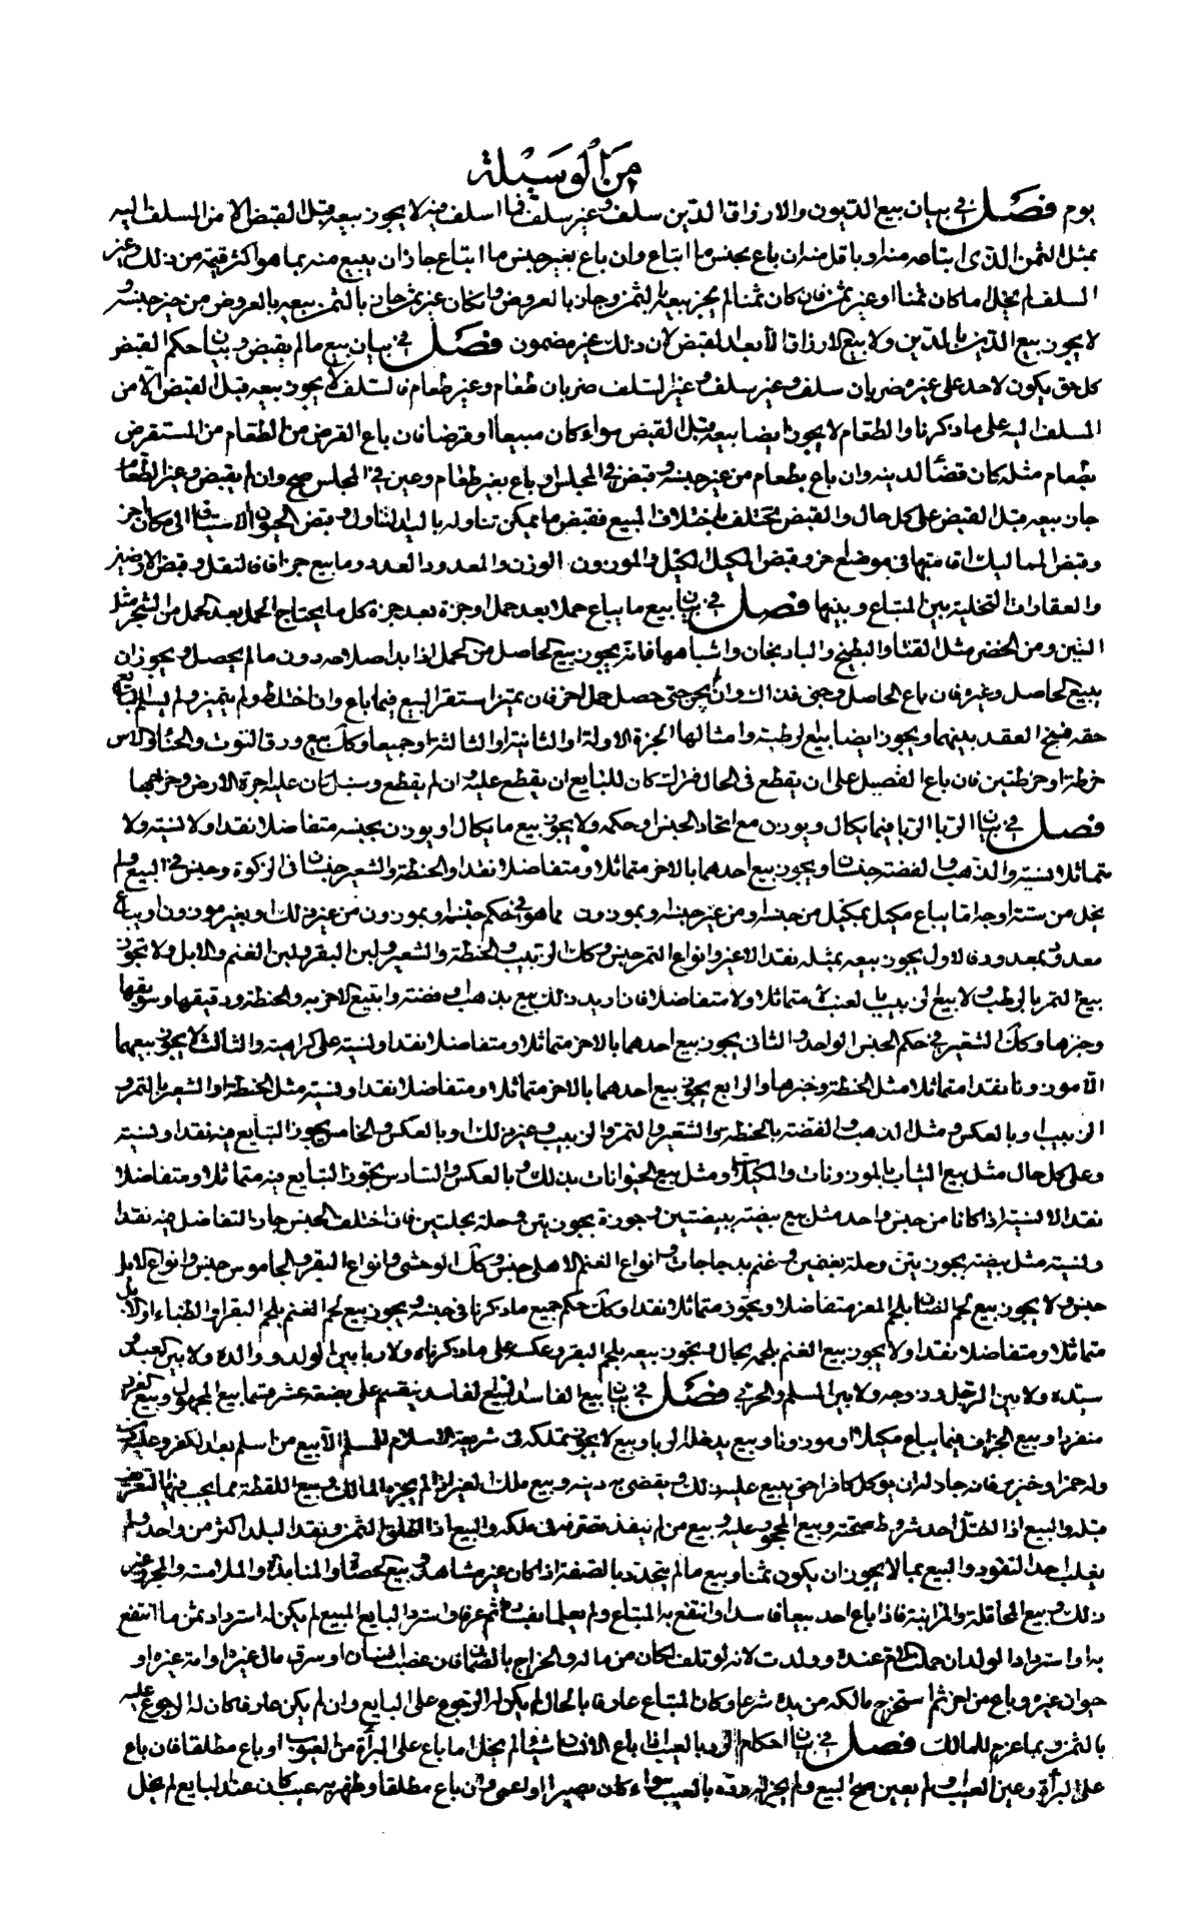 من الوسيلة
يوم فصل في بيان بيع الديون والارزاق الدين سلف وغير سلف فما اسلف فيه لا يجوز بيعه قبل القبض الا من المسلف اليه
بمثل الثمن الذي ابتاعه منه او باقل منه ان باع بجنس ما ابتاع وان باع بغير جنس ما ابتاع جاز ان يبيع منه بما هو اكثر قيمة من ذلك وغير
السلف لم يخل اما كان ثمنا او غير ثمن فان كان ثمنا لم يجز بيعه بالثمن وجاز بالعروض وان كان غير ثمن جاز بالثمن بيعه بالعروض من غير جنسه و
لا يجوز بيع الدين بالدين ولا بيع الارزاق الا بعد القبض لان ذلك غير مضمون فصل في بيان بيع ما لم يقبض وبيان حكم القبض
كل حق يكون لاحد على غيره ضربان سلف وغير سلف وغير السلف ضربان طعام وغير طعام فالسلف لا يجوز بيعه قبل القبض الا من
المسلف اليه على ما ذكرنا والطعام لا يجوز ايضا بيعه قبل القبض سواء كان مبيعا او قرضا فان باع القرض من الطعام من المستقرض
بطعام مثله كان قضاء لدينه وان باع بطعام من غير جنسه وقبض في المجلس او باع بغير طعام وعين في المجلس صح وان لم يقبض وغير الطعام
جاز بيعه قبل القبض على كل حال والقبض يختلف باختلاف المبيع فقبض ما يمكن تناوله باليد التناول وقبض الحيوان الاستياق الى مكان اخر
وقبض المماليك اقامتها في موضع اخر وقبض المكيل الكيل والموزون الوزن والمعدود العدد وما بيع جزافا فالنقل وقبض الارضين
والعقارات التخلية بين المبتاع وبينها فصل في بيان بيع ما يباع حملا بعد حمل او جزة بعد جزة كل ما يحتاج الحمل بعد الحمل من الشجر مثل
التين ومن الخضر مثل القثاء والبطيخ والباذنجان واشباهها فانه يجوز بيع الحاصل من الحمل اذا بدا صلاحه دون ما لم يحصل ويجوز ان
يبيع الحاصل وغيره فان باع الحاصل وجنى فذاك وان لم يجن حتى حصل حمل اخر فان تميز استقر البيع فيما باع وان اختلط ولم يتميز ولم يسلم البايع
حقه فسخ العقد بينهما ويجوز ايضا بيع الرطبة وامثالها الجزة الاولة والثانية والثالثة وجميعا وكذلك بيع ورق التوت والحناء والاس
خرطة او خرطتين فان باع الفصيل على ان يقطع في الحال فترك كان للبايع ان يقطع عليه وان لم يقطع وسنبل كان عليه اجرة الارض وخراجها
فصل في بيان الربا الربا فيما يكال ويوزن مع اتحاد الجنس او حكمه ولا يجوز بيع ما يكال او يوزن بجنسه متفاضلا نقدا ولا نسية ولا
متماثلا نسية والذهب والفضة جنسان ويجوز بيع احدهما بالاخر متماثلا ومتفاضلا نقدا والحنطة والشعير جنسان في الزكوة وجنس في البيع ولم
يخل من ستة اوجه اما يباع مكيل بمكيل من جنسه او من غير جنسه او بموزون مما هو في حكم جنسه او بموزون من غير ذلك او بغير موزون او يباع
معدود بمعدود فالاول يجوز بيعه بمثله نقدا لا غير وانواع التمر جنس وكذلك الزبيب والحنطة والشعير ولبن البقر ولبن الغنم والابل ولا يجوز
بيع التمر بالرطب ولا بيع الزبيب بالعنب لا متماثلا ولا متفاضلا فان اريد ذلك بيع بذهب او فضة وابتيع الاخر به والحنطة ودقيقها وسويقها
وخبزها وكذلك الشعير في حكم الجنس الواحد والثاني يجوز بيع احدهما بالاخر متماثلا ومتفاضلا نقدا ونسية على كراهية والثالث لا يجوز بيعهما
الا موزونا نقدا متماثلا مثل الحنطة وخبزها والرابع يجوز بيع احدهما بالاخر متماثلا ومتفاضلا نقدا ونسية مثل الحنطة او الشعير بالتمر و
الزبيب او بالعكس ومثل الذهب والفضة بالحنطة والشعير والتمر والزبيب وغير ذلك او بالعكس والخامس يجوز التبايع فيه نقدا ونسية
وعلى كل حال مثل بيع الثياب بالموزونات والمكيلات ومثل بيع الحيوانات بذلك او بالعكس والسادس يجوز التبايع فيه متماثلا ومتفاضلا
نقدا لا نسية اذا كانا من جنس واحد مثل بيع بيضة ببيضتين وجوزة بجوزتين وحلة بحلتين فان اختلف الجنس جاز التفاضل فيه نقدا
ونسية مثل بيضة بجوزتين وحلة بقميصين وغنم بدجاجات وانواع الغنم الاهلي جنس وكذلك الوحشي وانواع البقر والجاموس جنس وانواع الابل
جنس ولا يجوز بيع لحم الضان بلحم المعز متفاضلا ويجوز متماثلا نقدا وكذلك حكم جميع ما ذكرنا في جنسه ويجوز بيع لحم الغنم بلحم البقر او الظباء او الابل
متماثلا ومتفاضلا نقدا ولا يجوز بيع الغنم بلحمه بحال ويجوز بيعه بلحم البقر وعكسه على ما ذكرناه ولا ربا بين الولد ووالده ولا بين العبد و
سيده ولا بين الرجل وزوجه ولا بين المسلم والحربي فصل في بيان بيع الفاسد البيع الفاسد ينقسم على بضعة عشر قسما بيع المجهول وبيع الغرر
منفردا وبيع الجزاف فيما يباع مكيلا او موزونا وبيع يدخله الربا وبيع لا يجوز تملكه في شريعة الاسلام للمسلم الا بيع من اسلم بعد الكفر وعليه دين
وله خمر او خنزير فانه جاز له ان يوكل كافرا حتى يبيع عليه ذلك ويقضي به دينه وبيع ملك الغير اذا لم يجزه المالك وبيع اللقطة مما يجب فيها التعريف
قبله والبيع اذا اختل احد شروط صحته وبيع المحجور عليه وبيع من لم ينفذ تصرفه في ملكه والبيع اذا اطلق الثمن ونقد البلد اكثر من واحد ولم
يغلب احد النقود والبيع بما لا يجوز ان يكون ثمنا وبيع ما لم يتحدد بالصفة اذا كان غير مشاهد وبيع الحصاة والمنابذة والملامسة والمجر وغير
ذلك وبيع المحاقلة والمزابنة فاذا باع احد بيعا فاسدا وانتفع به المبتاع ولم يعلما بفساده ثم عرفا واسترد البايع المبيع لم يكن له استرداد ثمن ما انتفع
به او استرداد الولد ان حملت الام عنده وولدت لانه لو تلف لكان من ماله والخراج بالضمان فان غصب انسان او سرق مال غيره او امة غيره او
حيوان غيره وباع من اخر ثم استخرج مالكه من يده شرعا وكان المبتاع عارفا بالحال لم يكن له الرجوع على البايع وان لم يكن عارفا كان له الرجوع عليه
بالثمن وبما غرم للمالك فصل في بيان احكام الرد بالعيب اذا باع الانسان شيئا لم يخل اما باع على البراءة من العيوب او باع مطلقا فان باع
على البراءة وعين العيب او لم يعين صح البيع ولم يجز له رده بالعيب سواء كان بصيرا او اعمى وان باع مطلقا وظهر به عيب كان عند البايع لم يخل